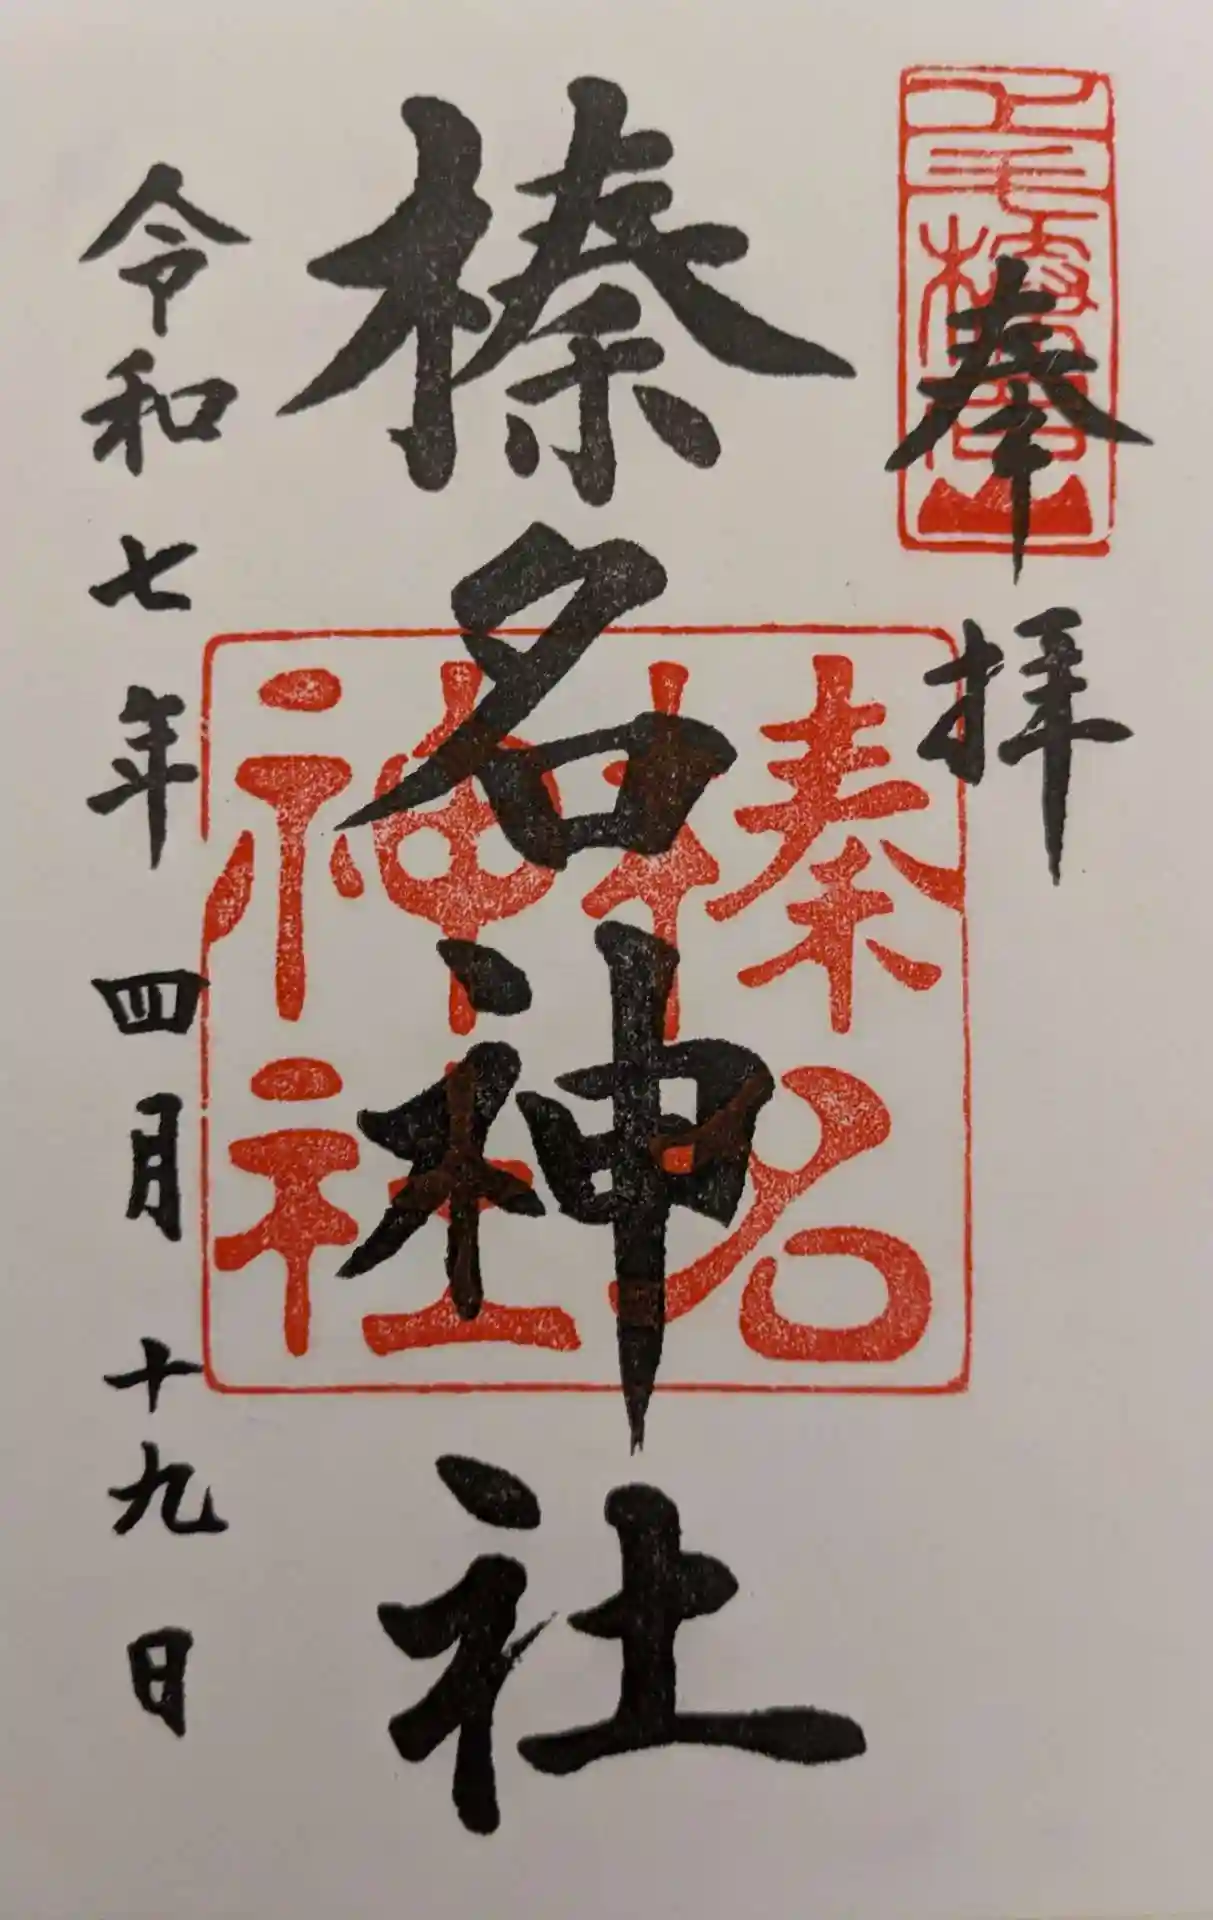 奉拝
上毛榛名山
榛名神社
榛名
神社
令和七年四月十九日